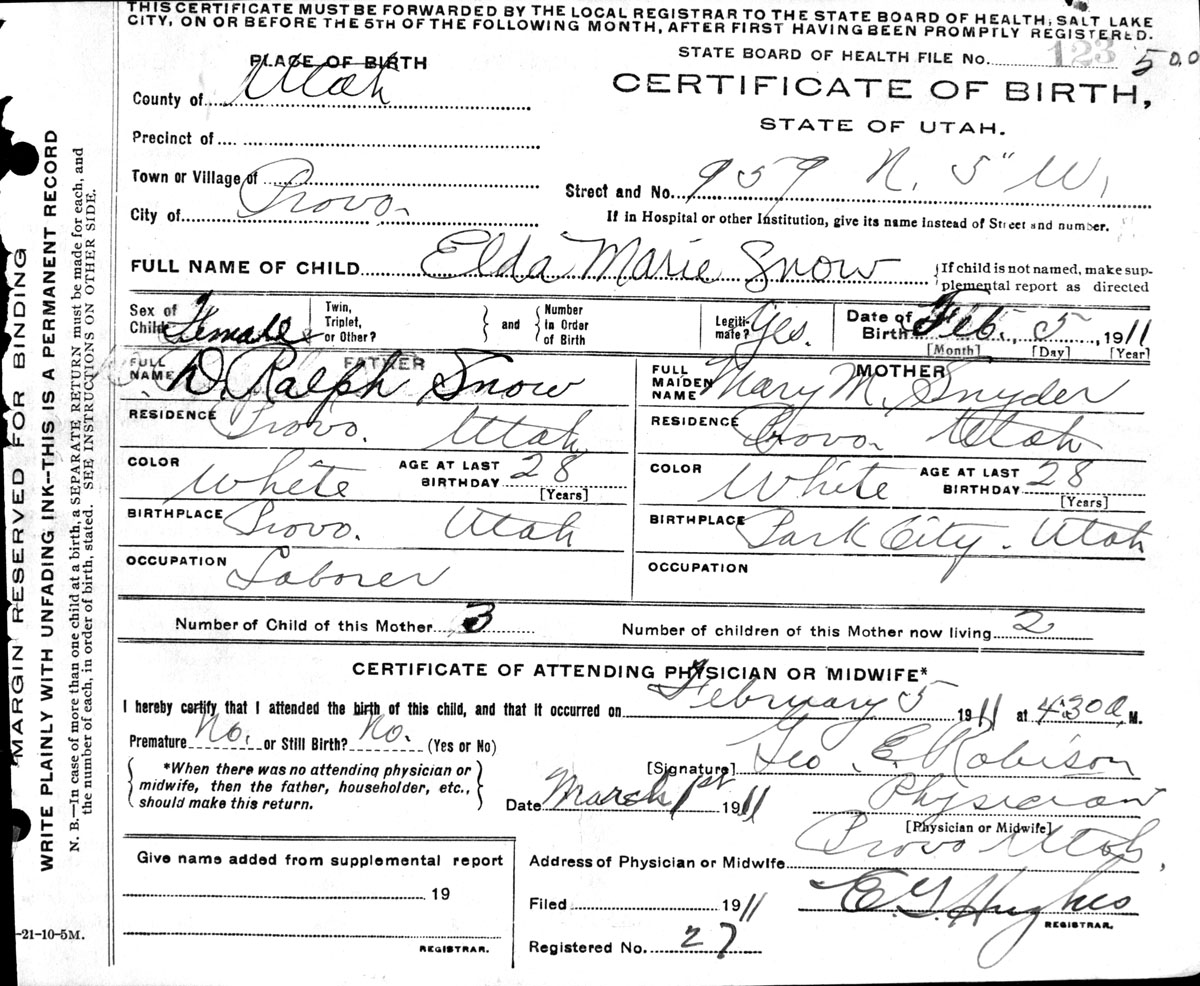 THIS CERTIFICATE MUST BE FORWARDED BY THE LOCAL REGISTRAR TO THE STATE BOARD OF HEALTH, SALT LAKE
CITY, ON OR BEFORE THE 5TH OF THE FOLLOWING MONTH, AFTER FIRST HAVING BEEN PROMPTLY REGISTERED.
STATE BOARD OF HEALTH FILE NO. 123 500
PLACE OF BIRTH
County of Utah
CERTIFICATE OF BIRTH,
STATE OF UTAH.
Precinct of
Town or Village of
Street and No. 959 N. 5" W.
City of Provo.
If in Hospital or other Institution, give its name instead of Street and number.
FULL NAME OF CHILD Elda Marie Snow
If child is not named, make sup-
plemental report as directed
Sex of Child Female
Twin, Triplet, or Other?
and
Number in Order of Birth
Legiti-mate? Yes.
Date of Birth Feb. 5, 1911
[Month] [Day] [Year]
FATHER
FULL NAME D. Ralph Snow
RESIDENCE Provo. Utah
COLOR White AGE AT LAST BIRTHDAY 28
[Years]
BIRTHPLACE Provo. Utah
OCCUPATION Laborer
MOTHER
FULL MAIDEN NAME Mary M. Snyder
RESIDENCE Provo. Utah
COLOR White AGE AT LAST BIRTHDAY 28
[Years]
BIRTHPLACE Park City. Utah
OCCUPATION
Number of Child of this Mother 3 Number of children of this Mother now living 2
CERTIFICATE OF ATTENDING PHYSICIAN OR MIDWIFE*
I hereby certify that I attended the birth of this child, and that it occurred on February 5 1911 at 4:30 a, M.
Premature No. or Still Birth? No. (Yes or No)
*When there was no attending physician or
midwife, then the father, householder, etc.,
should make this return.
[Signature] Geo. E. Robison
Date March 1st 1911 Physician
[Physician or Midwife]
Address of Physician or Midwife Provo Utah,
Give name added from supplemental report
19
REGISTRAR.
Filed 1911 E. G. Hughes
REGISTRAR.
Registered No. 27
-21-10-5M.
MARGIN RESERVED FOR BINDING
WRITE PLAINLY WITH UNFADING INK--THIS IS A PERMANENT RECORD
N. B.—In case of more than one child at a birth, a SEPARATE RETURN must be made for each, and
the number of each, in order of birth, stated. SEE INSTRUCTIONS ON OTHER SIDE.